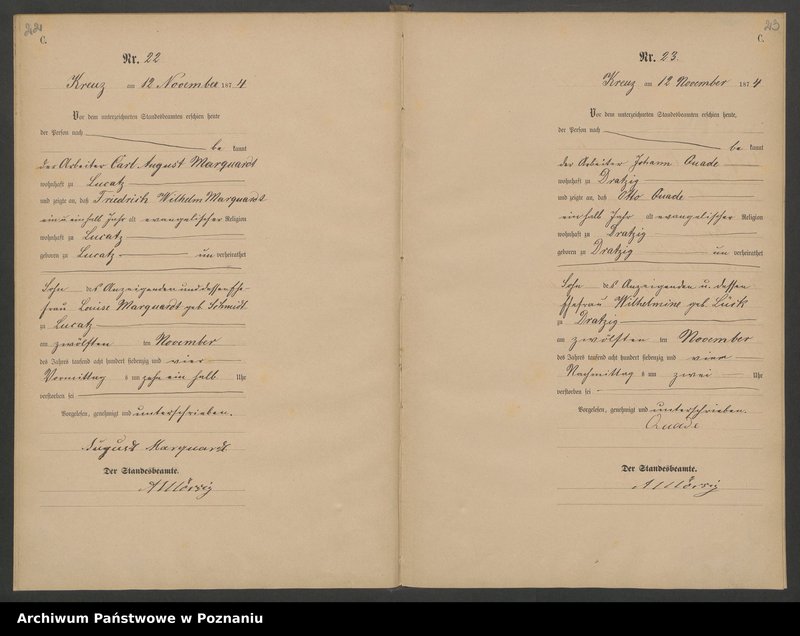 22
C.
Nr. 22
Kreuz am 12 November 1874
Vor dem unterzeichneten Standesbeamten erschien heute
der Person nach
be kannt
der Arbeiter Carl August Marquardt
wohnhaft zu Lucatz
und zeigte an, daß Friedrich Wilhelm Marquardt
ein u einhalb Jahr alt evangelischer Religion
wohnhaft zu Lucatz
geboren zu Lucatz un verheirathet
Sohn des Anzeigenden und dessen Ehe-
frau Louise Marquardt geb. Schmidt
zu Lucatz
am zwölften ten November
des Jahres tausend acht hundert siebenzig und vier
Vormittag s um zehn ein halb Uhr
verstorben sei
Vorgelesen, genehmigt und unterschrieben.
August Marquardt
Der Standesbeamte.
23
C.
Nr. 23.
Kreuz am 12 November 1874
Vor dem unterzeichneten Standesbeamten erschien heute,
der Person nach
be kannt
der Arbeiter Johann Quade
wohnhaft zu Dratzig
und zeigte an, daß Otto Quade
einhalb Jahr alt evangelischer Religion
wohnhaft zu Dratzig
geboren zu Dratzig un verheirathet
Sohn des Anzeigenden u. dessen
Ehefrau Wilhelmine geb.
zu Dratzig
am zwölften ten November
des Jahres tausend acht hundert siebenzig und vier
Nachmittag s um zwei Uhr
verstorben sei
Vorgelesen, genehmigt und unterschrieben.
Quade
Der Standesbeamte.
Archiwum Państwowe w Poznaniu